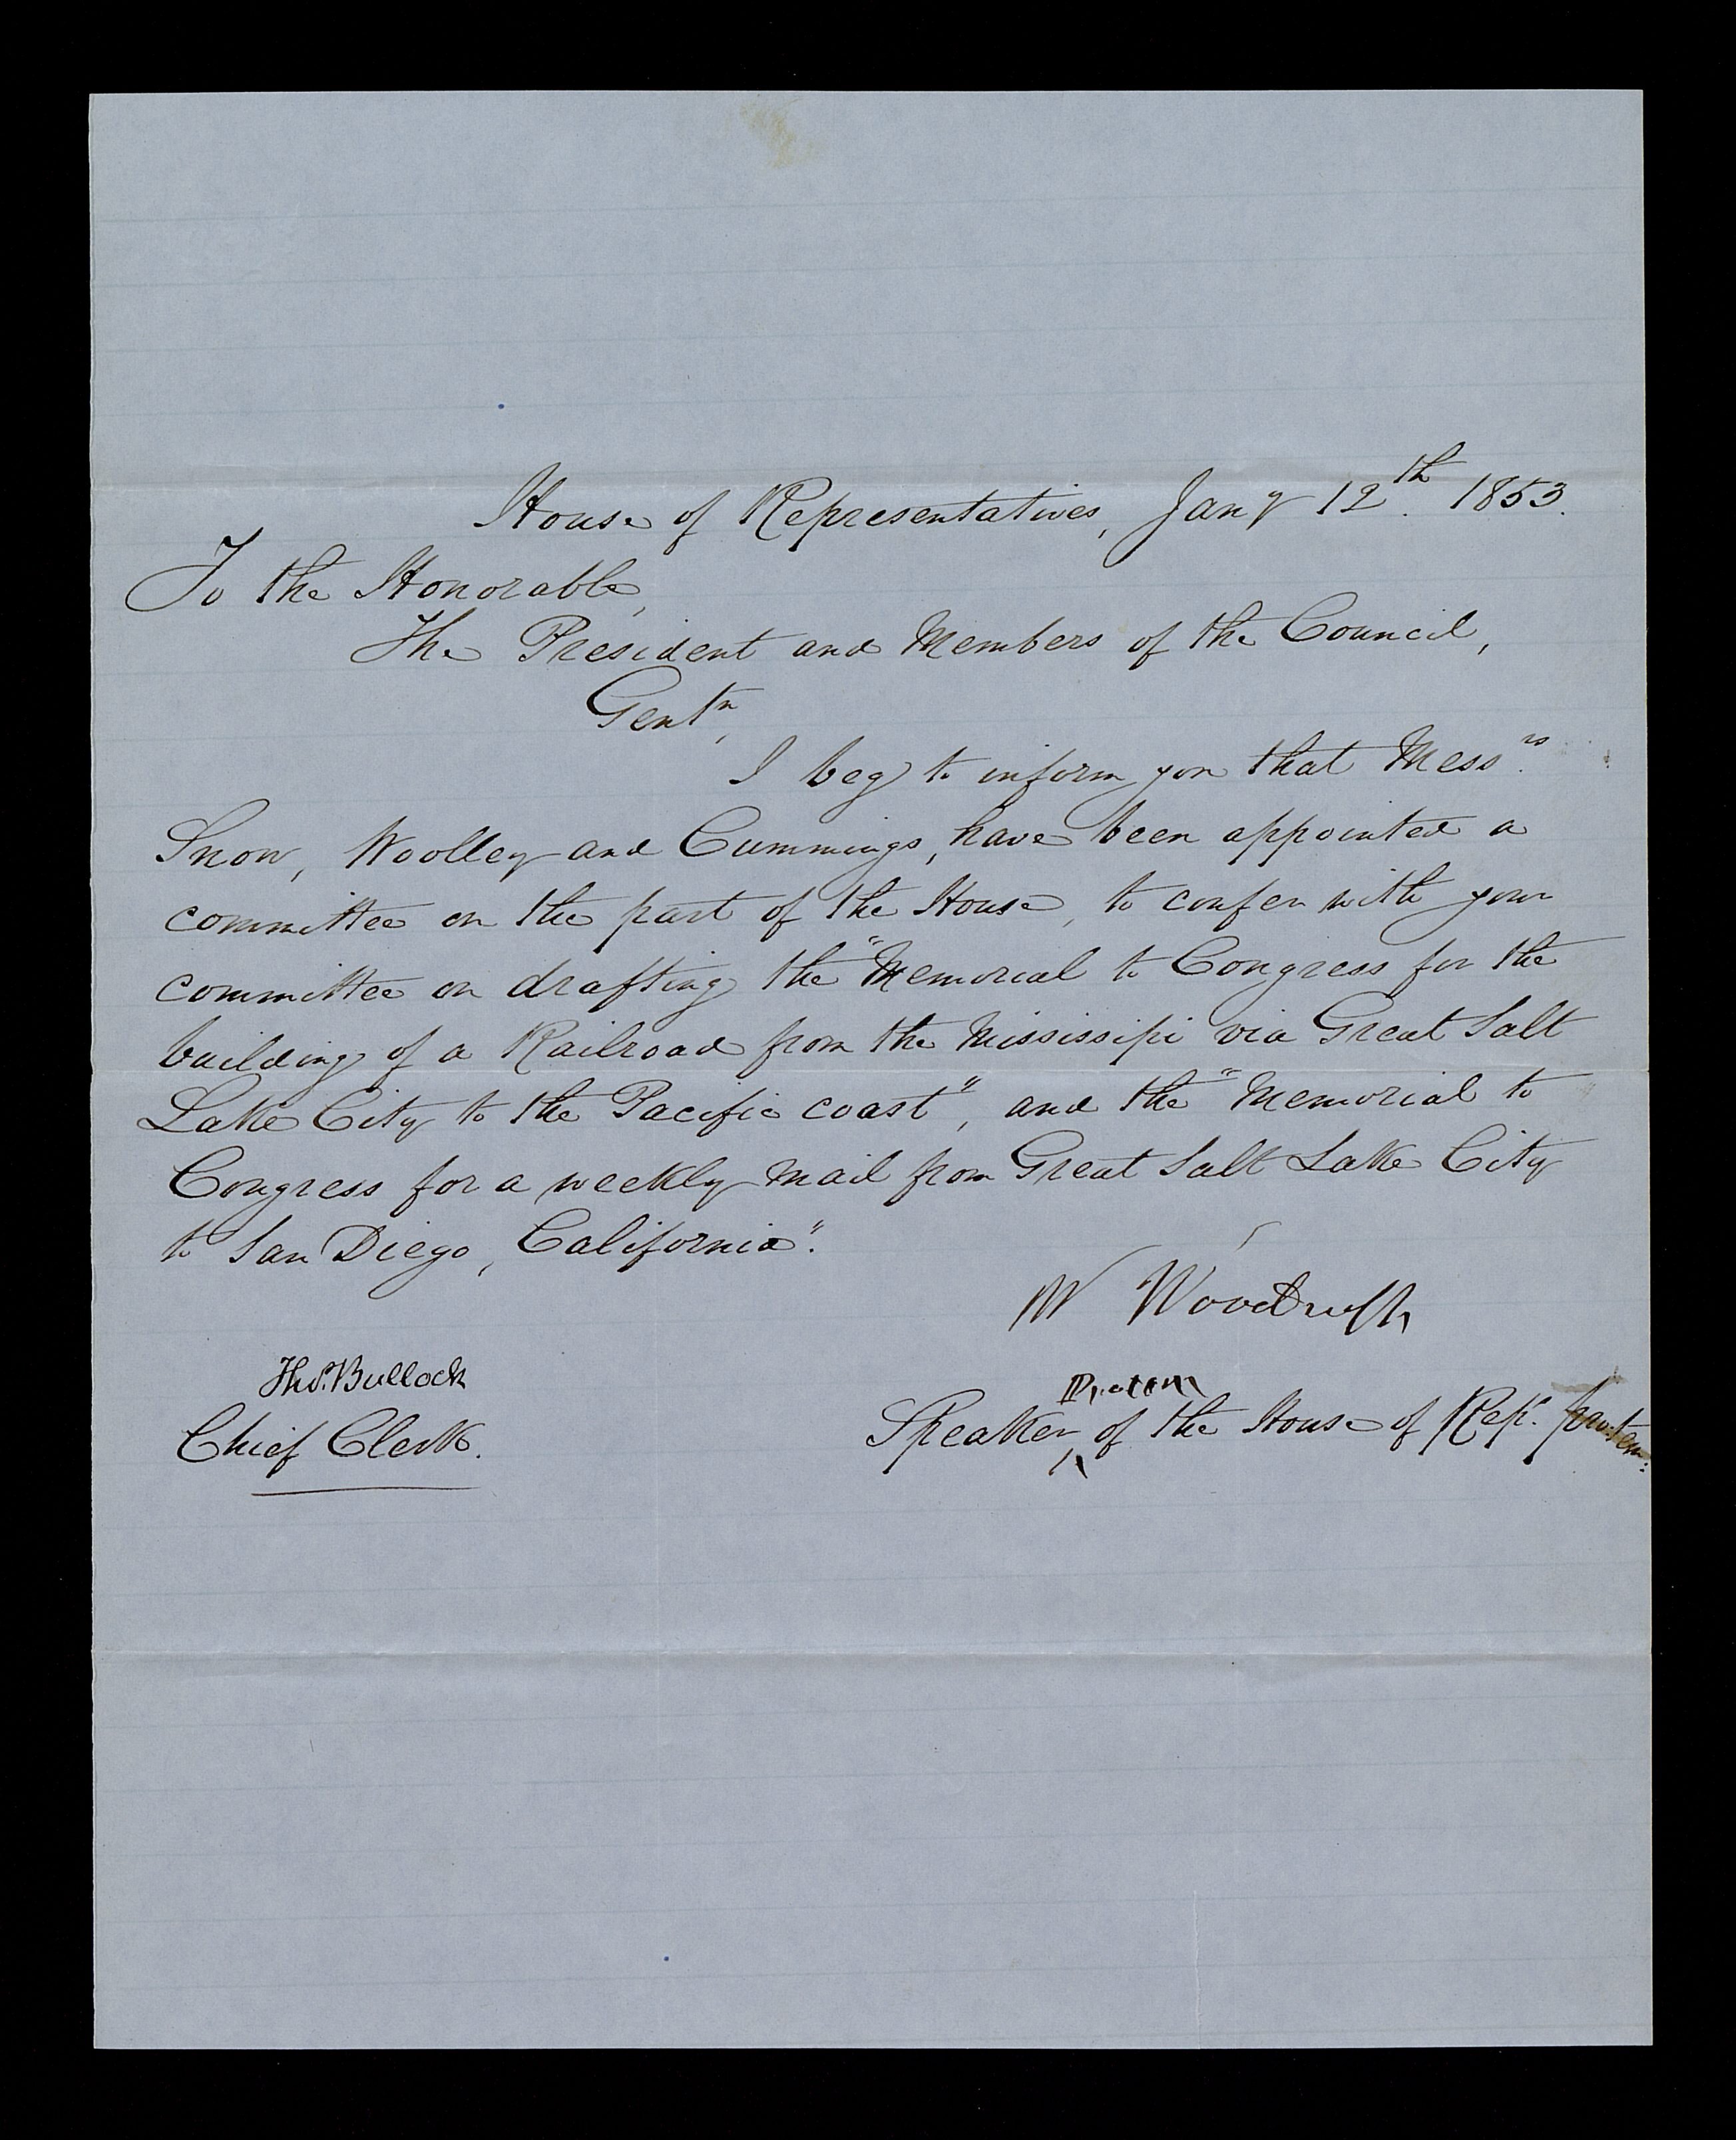 House of Representatives, Jany 12th. 1853.
To the Honorable,
The President and Members of the Council,
Gentn,
I beg to inform you that Messrs.
Snow, Woolley and Cummings, have been appointed a
committee on the part of the House, to confer with your
committee on drafting the "Memorial to Congress for the
building of a Railroad from the Mississipi via Great Salt
Lake City to the Pacific coast", and the "Memorial to
Congress for a weekly mail from Great Salt Lake City
to San Diego, California".
W Woodruff
Thos. Bullock
Protem
Speaker of the House of Rep. pro. tem.
Chief Clerk.